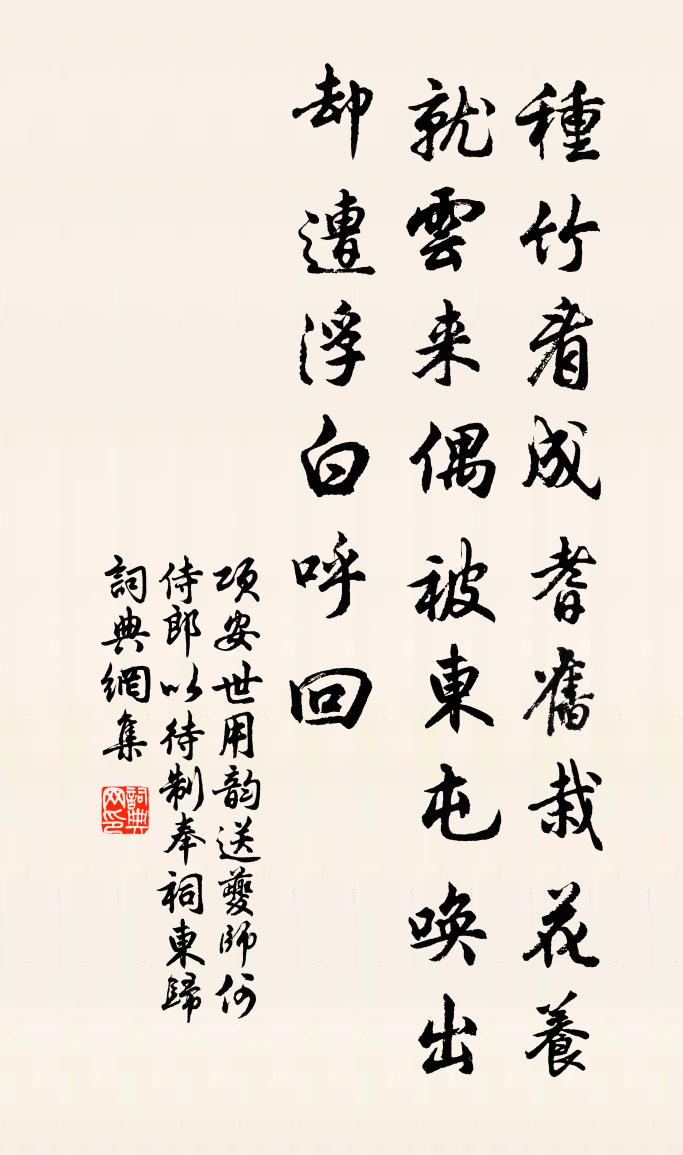 種竹看成耆舊栽花養
就雲来偶被東屯喚出
却遭浮白呼回
項安世用韵送夔師何
侍郎以待制奉祠東歸
詞典網集
詞典网印